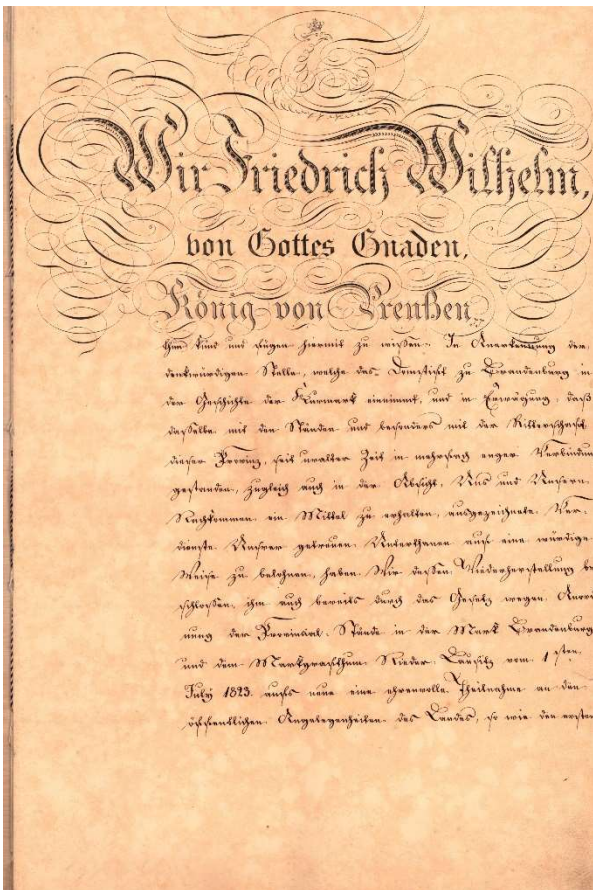 Wir Friedrich Wilhelm,
von Gottes Gnaden,
König von Preußen
thun kund und fügen hiermit zu wissen. In Anerkennung der
denkwürdigen Stelle, welche das Domstift zu Brandenburg in
der Geschichte der Kurmark einnimmt, und in Erwägung, daß
dasselbe mit den Ständen und besonders mit der Ritterschaft
dieser Provinz, seit uralter Zeit in mehrfach enger Verbindun
gestanden, zugleich auch in der Absicht, Uns und Unsern
Nachkommen ein Mittel zu erhalten, ausgezeichnete Ver-
dienste Unsrer getreuen Unterthanen auf eine würdige
Weise zu belohnen, haben Wir dessen Wiederherstellung be
schlossen, ihm auch bereits durch das Gesetz wegen Anord
nung der Provinzial-Stände in der Mark Brandenburg
und dem Markgrafthum Nieder-Lausitz vom 1sten
July 1823. aufs neue eine ehrenvolle Theilnahme an den
öffentlichen Angelegenheiten des Landes, so wie den ersten